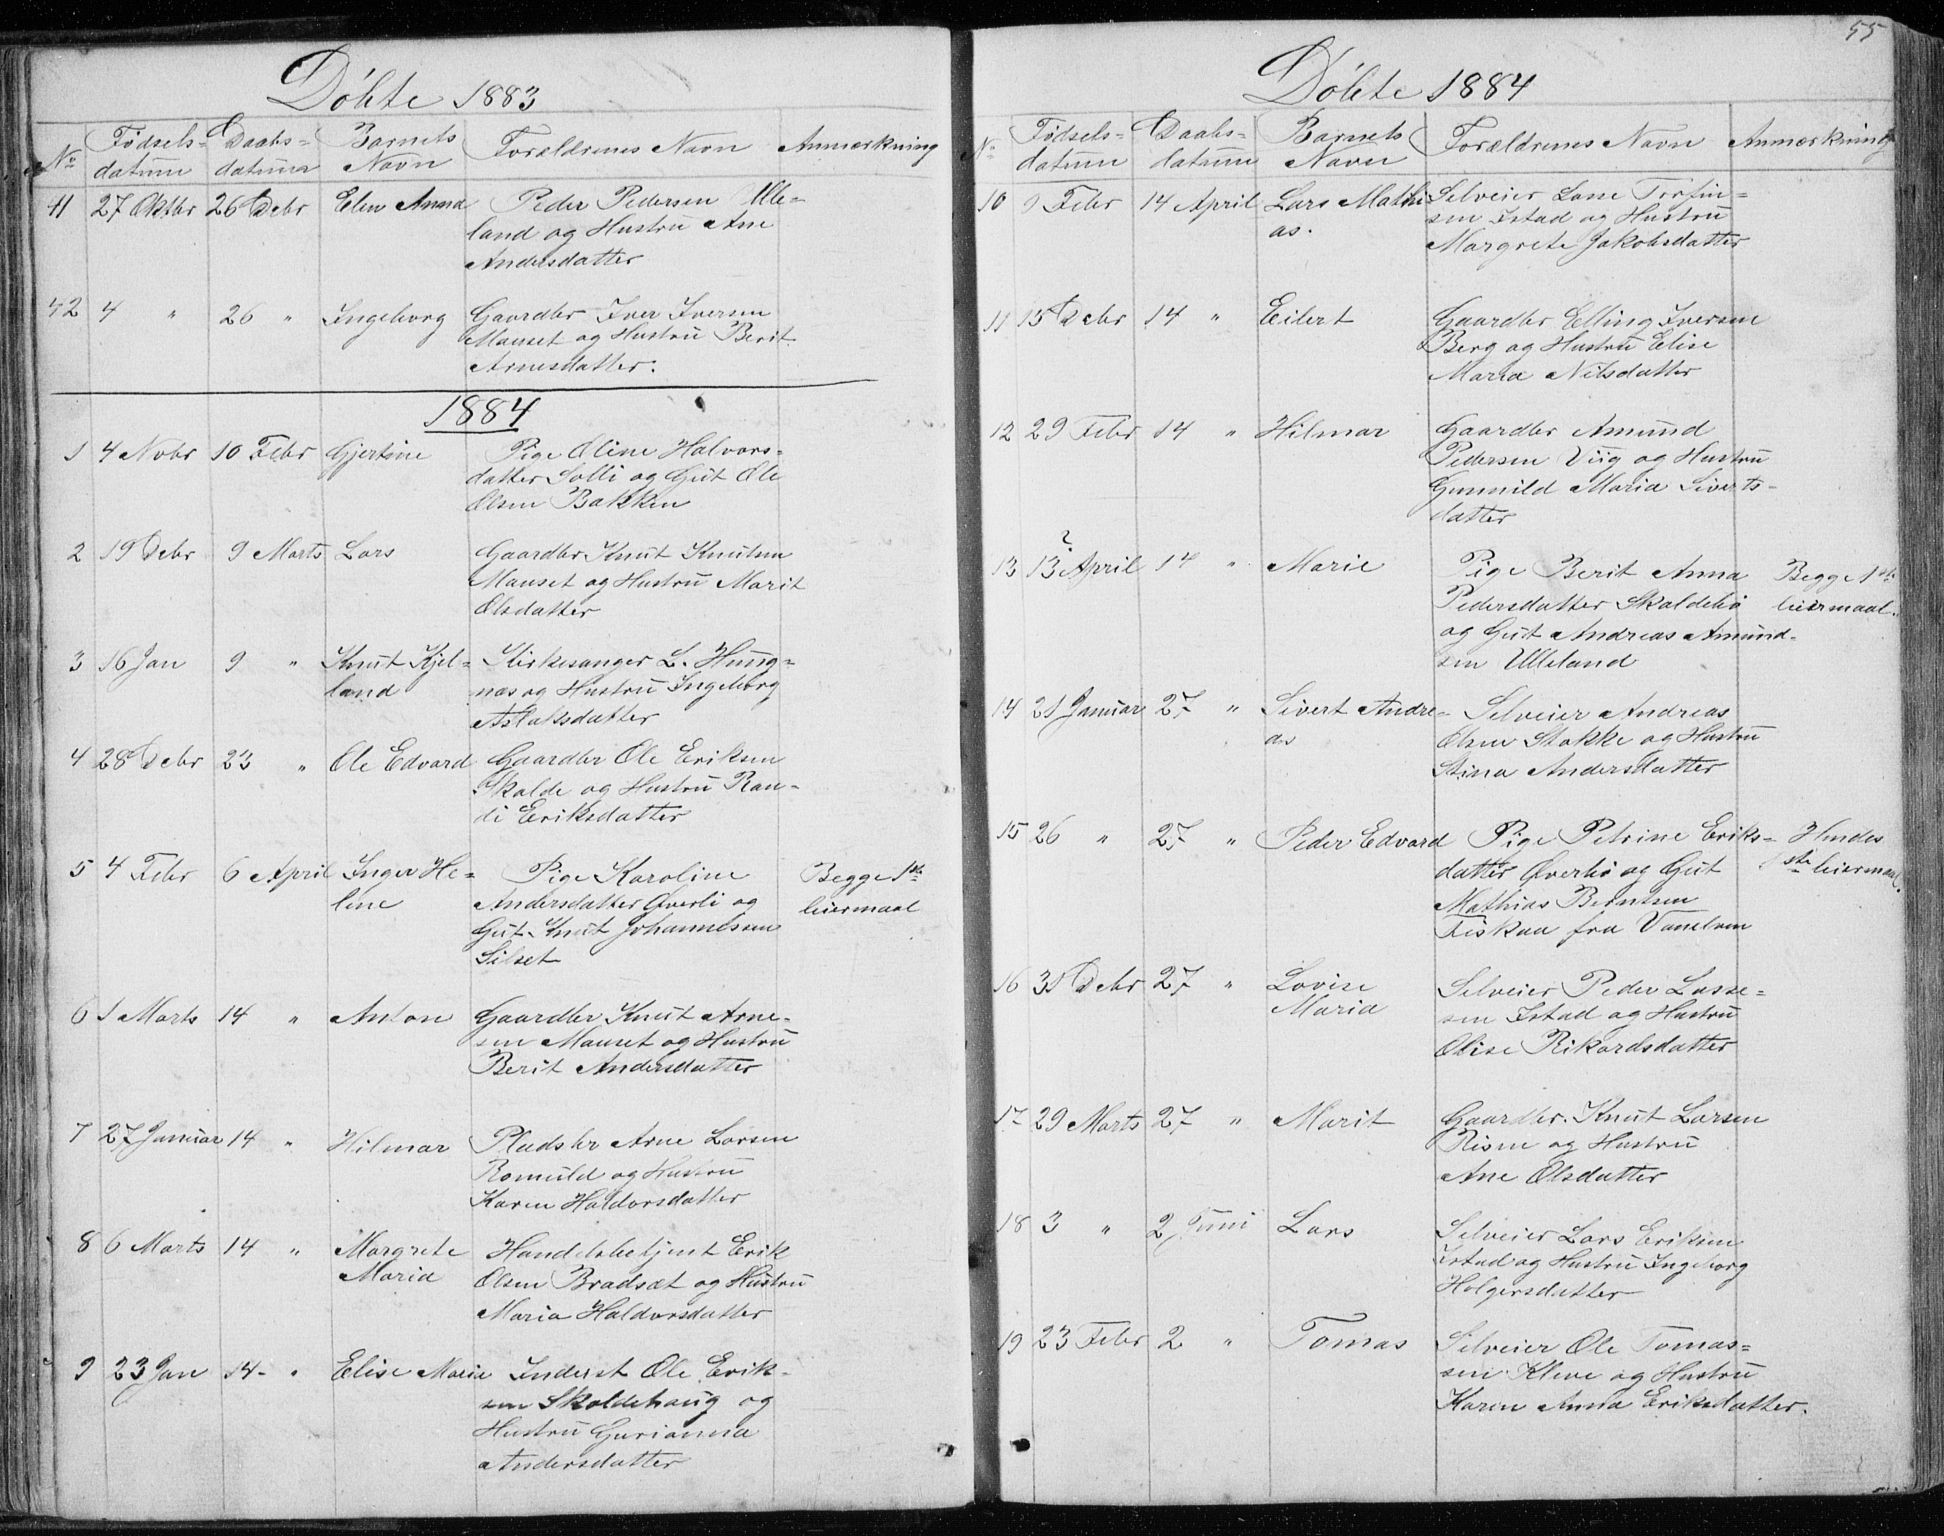 Döbte 1883
No Fødsels-datum Daabs-datum Barnets Navn Forældrenes Navn Anmærkning
41 27 Oktbr 26 Debr Elen Anna Peder Pedersen Ulle-
land og Hustru Ane
Andersdatter
42 4 " 26 " Ingeborg Gaardbr Iver Iversen
Mauset og Hustru Berit
Arnesdatter.
1884
1 4 Nobr 10 Febr Gjertine Pige Oline Halvors-
datter Solli og Gut Ole
Olsen Bakken
2 19 Debr 9 Marts Lars Gaardbr Knut Knutsen
Mauset og Hustru Marit
Olsdatter
3 16 Jan 9 " Knut Kjel- Kirkesanger L. Hung-
land næs og Hustru Ingeborg
Aslaksdatter
4 28 Debr 23 " Ole Edvard Gaardbr Ole Eriksen
Skalde og Hustru Ran-
di Eriksdatter
5 4 Febr 6 April Inger He- Pige Karoline Begge 1ste
line Andersdatter Øverli og leiermaal
Gut Knut Johannessen
Silset
6 1 Marts 14 " Anton Gaardbr Knut Arne-
sen Mauset og Hustru
Berit Andersdatter
7 27 Januar 14 " Hilmar Pladsbr Arne Larsen
Romuld og Hustru
Karen Haldorsdatter
8 6 Marts 14 " Margrete Handelsbetjent Erik
Maria Olsen Bradsæt og Hustru
Maria Haldorsdatter
9 23 Jan 14 - " Elise Marie Inderst Ole Erik-
sen Skaldehaug og
Hustru Gurianna
Andersdatter
55
Döbte 1884
No Fødsels-datum Daabs-datum Barnets Navn Forældrenes Navn Anmærkning
10 9 Febr 14 April Lars Mathi- Selveier Lasse Torfin-
as. sen Istad og Hustru
Margrete Jakobsdatter
11 15 Debr 14 " Eilert Gaardbr Elling Iversen
Berg og Hustru Elise
Maria Nilsdatter
12 29 Febr 14 " Hilmar Gaardbr Amund
Pedersen Viig og Hustru
Gunnild Maria Siverts-
datter
?
13 13 April 14 " Marie Pige Berit Anna Begge 1ste
Pedersdatter Skaldebø leiermaal.
og Gut Andreas Amund-
sen Ulleland
14 21 Januar 27 " Sivert Andre- Selveier Andreas
as Olsen Stokke og Hustru
Stina Andersdatter
15 26 " 27 " Peder Edvard Pige Petrine Eriks- Hendes
datter Øverbø og Gut 1ste leiermaal.
Mathias Berntsen
Fiskaa fra Vanelven
16 31 Debr 27 " Lovise Selveier Peder Lasse-
Maria sen Istad og Hustru
Olise Rikardsdatter
17 29 Marts 27 " Marit Gaardbr. Knut Larsen
Risen og Hustru
Ane Olsdatter
18 3 " 2 Juni Lars Selveier Lars Eriksen
Istad og Hustru Ingeborg
Holgersdatter
19 23 Febr 2 " Tomas Selveier Ole Tomas-
sen Kleve og Hustru
Karen Anna Eriksdatter.